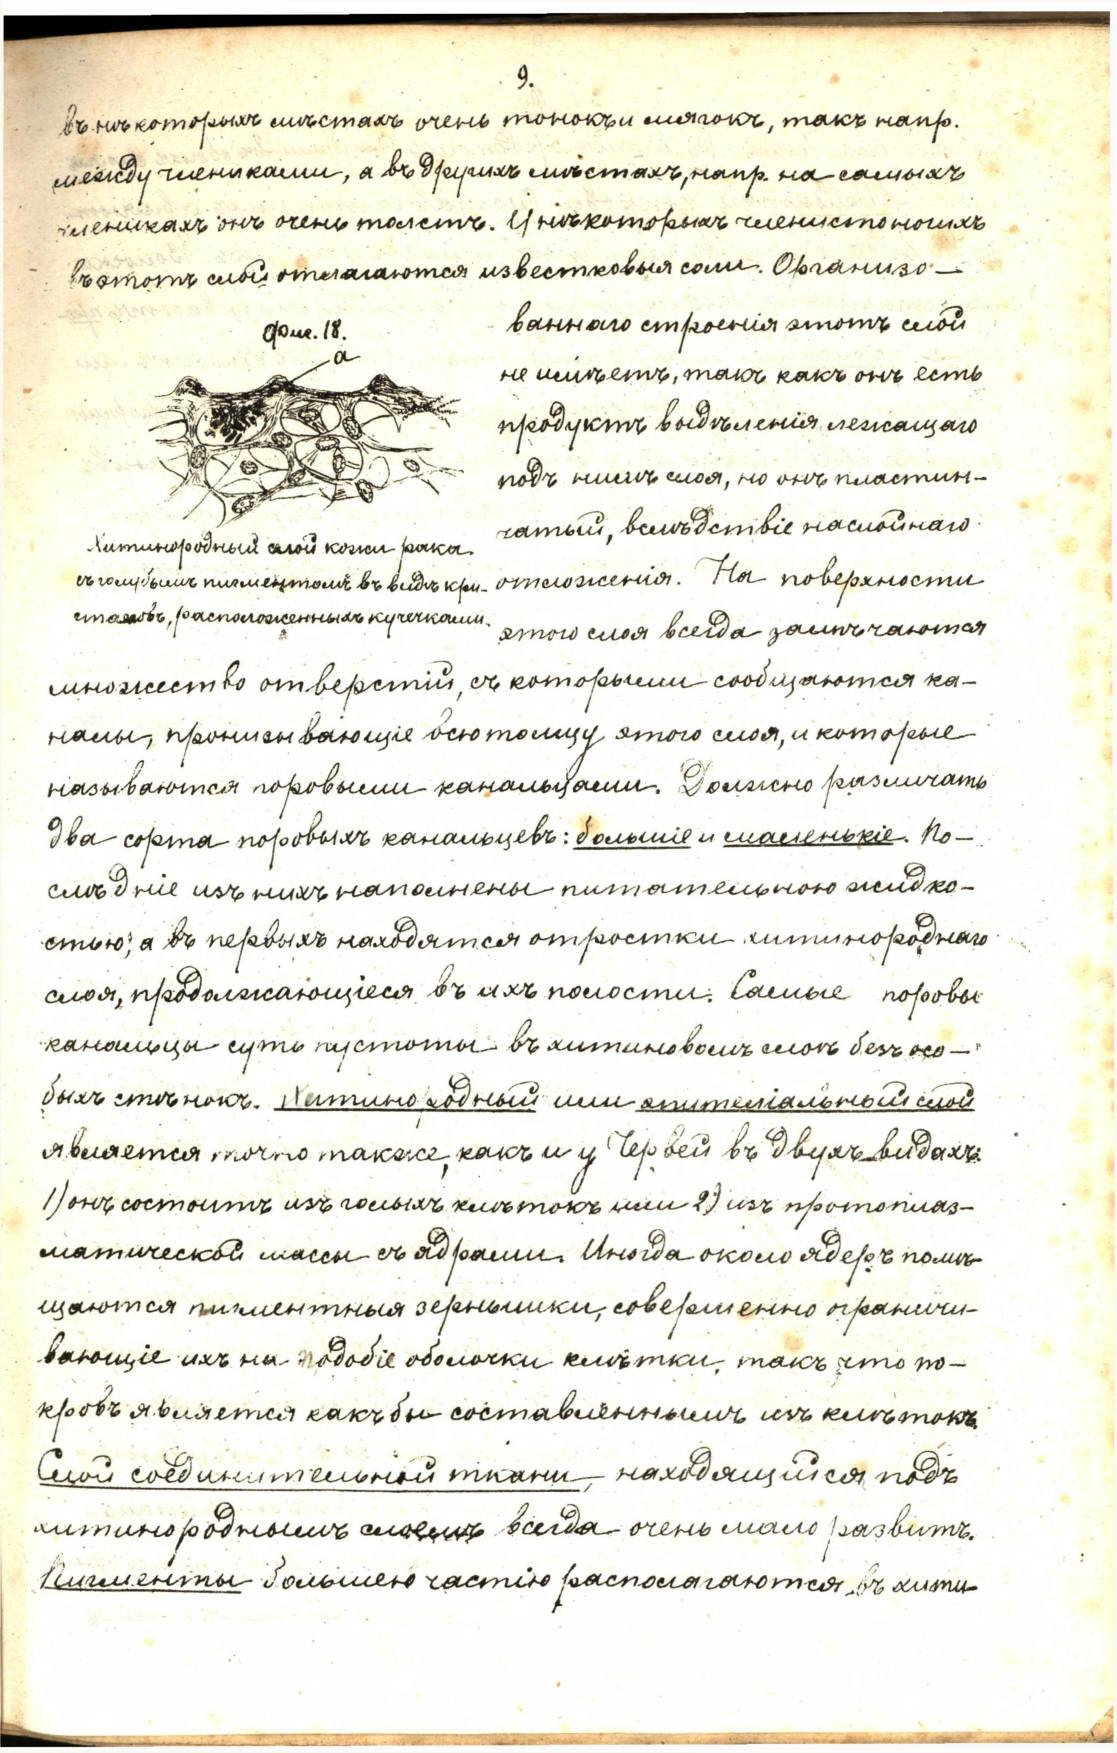 9.
въ нѣкоторыхъ мѣстахъ очень тонокъ и мягокъ, такъ напр.
между члениками, а въ другихъ мѣстахъ, напр. на самыхъ
членикахъ онъ очень толстъ. У нѣкоторыхъ членистоногихъ
въ этотъ слой отлагаются известковыя соли. Организо-
ваннаго строенія этотъ слой
не имѣетъ, такъ какъ онъ есть
продуктъ выдѣленія лежащаго
подъ нимъ слоя, но онъ пластин-
чатый, вслѣдствіе наслойнаго
отложенія. На поверхности
этого слоя всегда замѣчаются
Фиг. 18.
а
Хитинородный слой кожи рака
съ голубымъ пигментомъ въ видѣ кри-
сталовъ, расположенныхъ кучечками.
множество отверстій, съ которыми сообщаются ка-
налы, пронизывающіе всю толщу этого слоя, и которые
называются поровыми канальцами. Должно различать
два сорта поровыхъ канальцевъ: большіе и маленькіе. По-
слѣдніе изъ нихъ наполнены питательною жидко-
стью; а въ первыхъ находятся отростки хитинороднаго
слоя, продолжающіеся въ ихъ полости. Самые поровы
канальцы суть пустоты въ хитиновомъ слоѣ безъ осо-
быхъ стѣнокъ. Хитинородный или эпителіальный слой
является точно также, какъ и у Червей въ двухъ видахъ:
1) онъ состоитъ изъ голыхъ клѣтокъ или 2) изъ протоплаз-
матической массы съ ядрами. Иногда около ядеръ помѣ-
щаются пигментныя зернышки, совершенно ограничи-
вающіе ихъ на подобіе оболочки клѣтки, такъ что по-
кровъ является какъ бы составленнымъ изъ клѣтокъ.
Слой соединительной ткани, находящийся подъ
хитинороднымъ слоемъ всегда очень мало развитъ.
Пигменты большею частію располагаются въ хити-